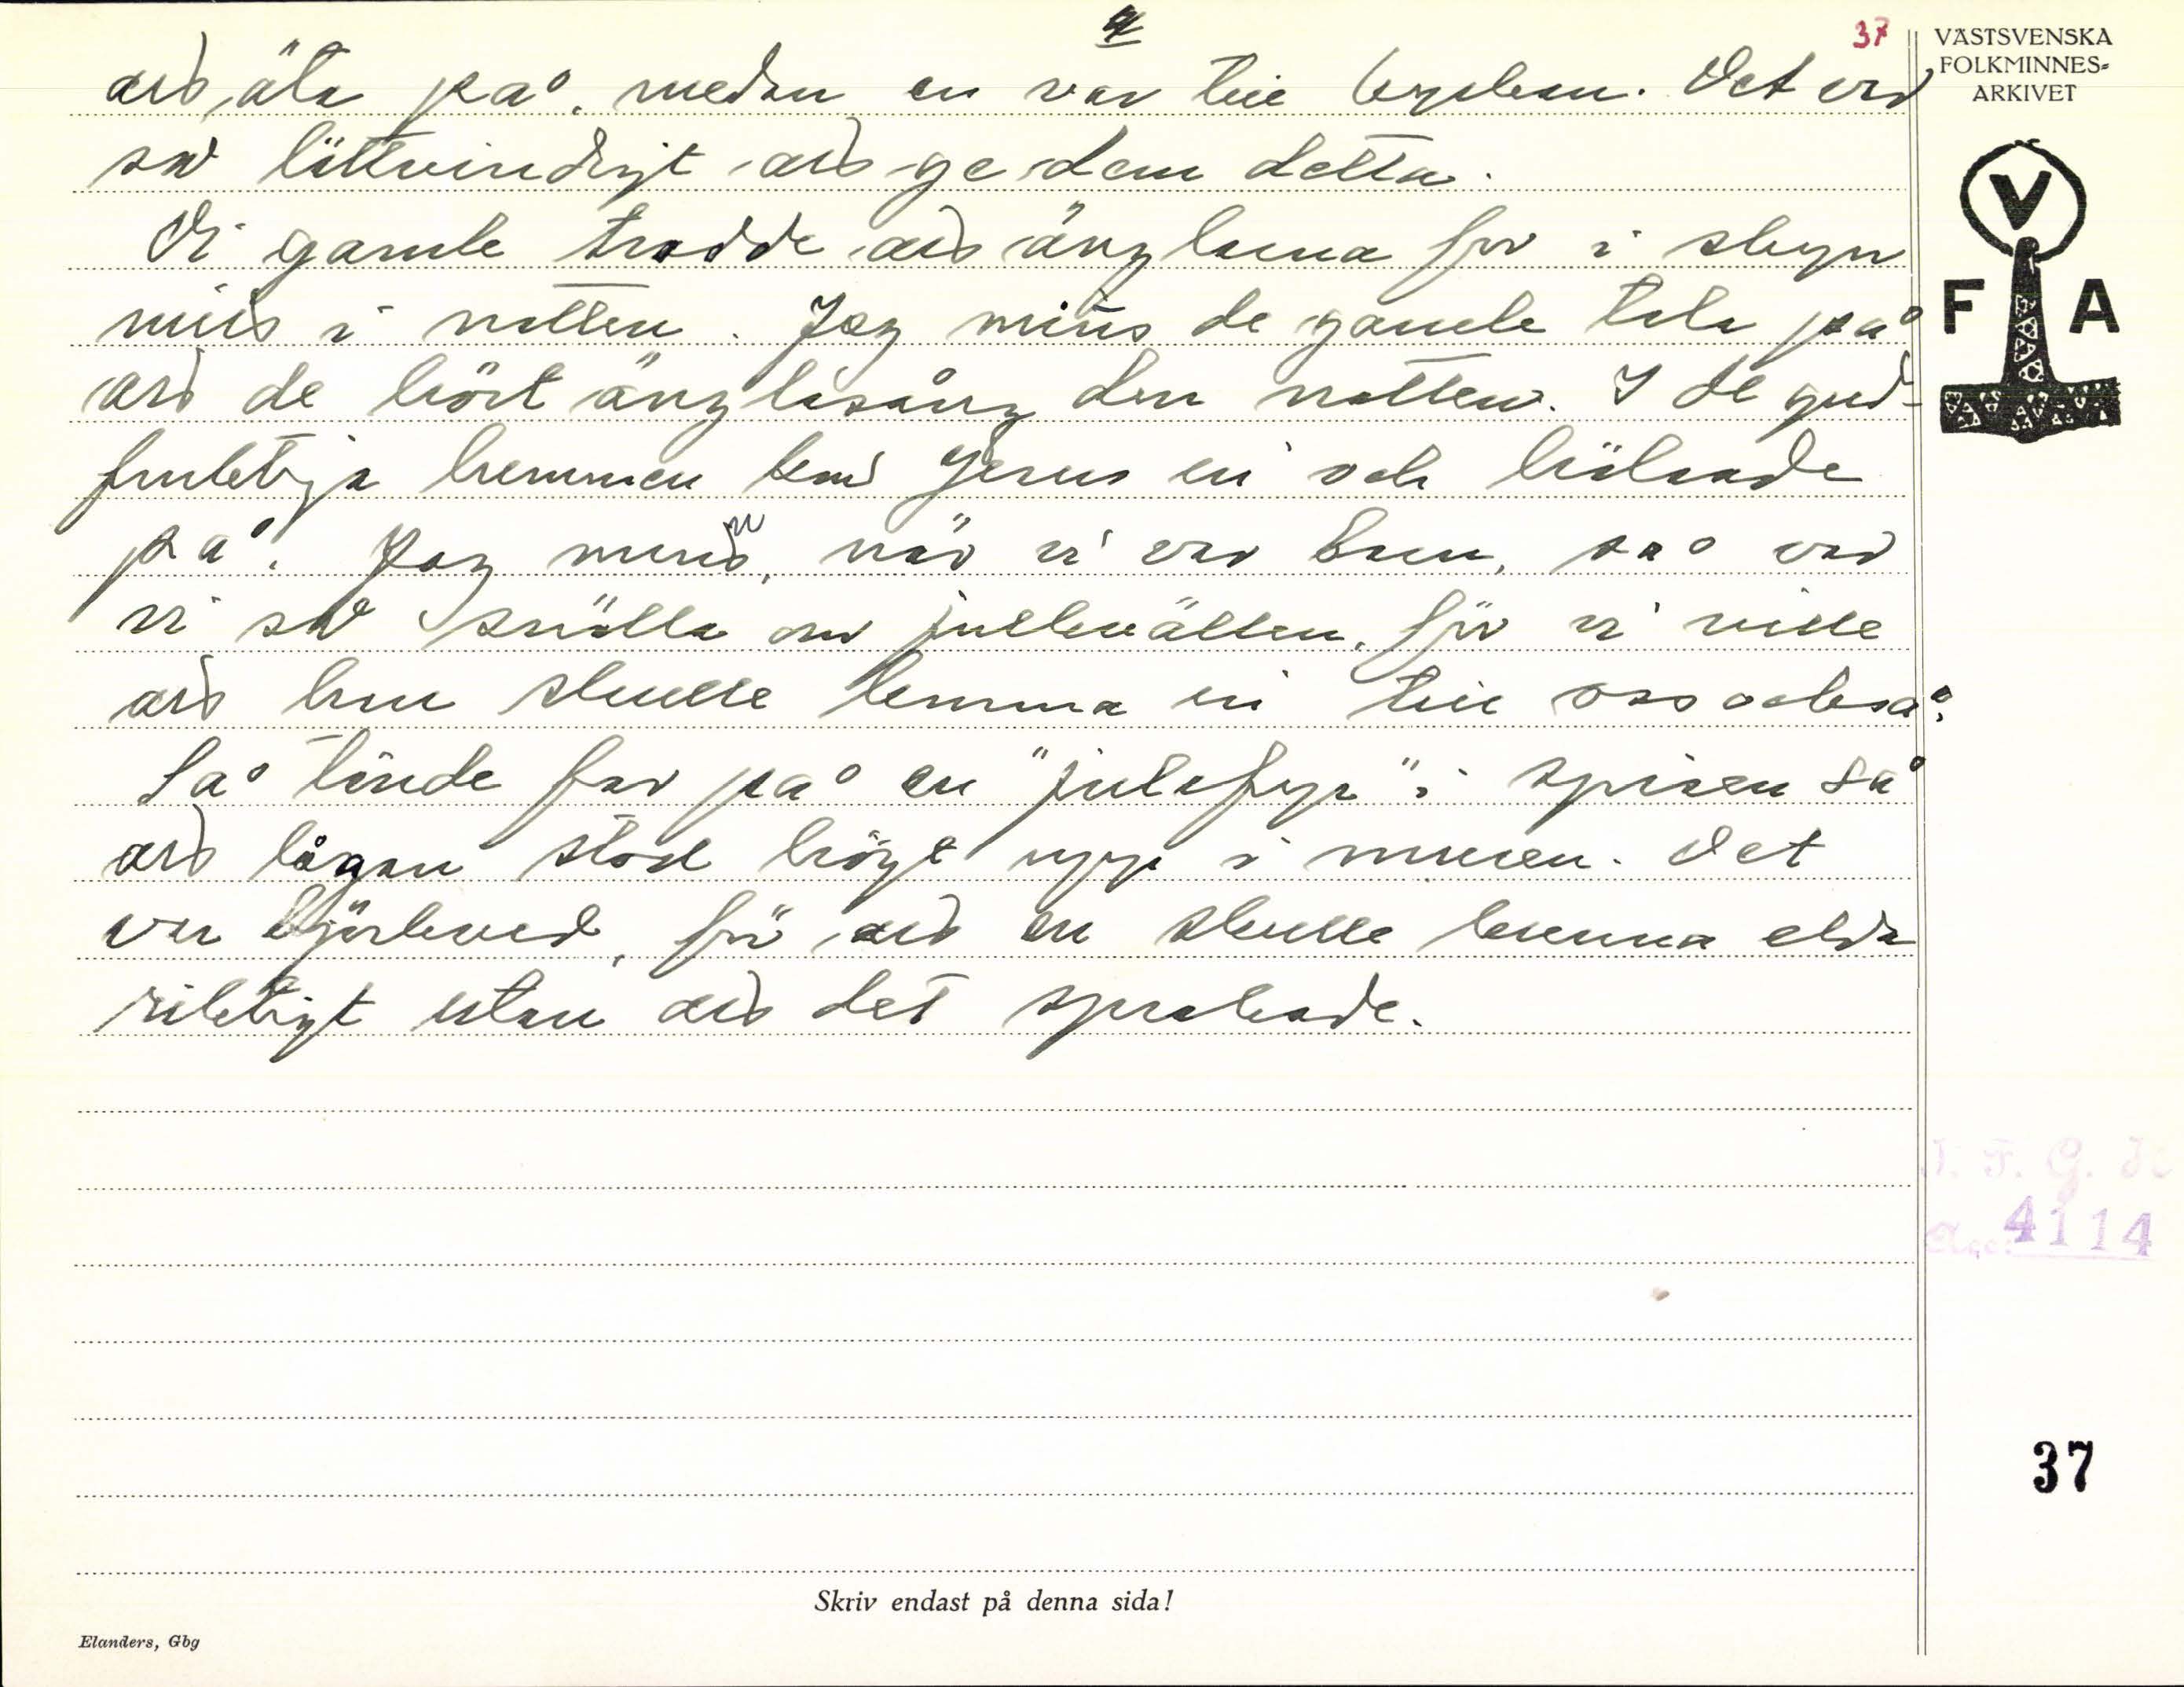 37
VÄSTSVENSKA
FOLKMINNES-
ARKIVET
V
F A
att äta på, medan en var till kyrkan. Det var
så lättvindigt att ge dem detta.
Di gamle trodde att änglarna for i skyn
mitt i natten. Jag minns de gamle tala på
att de hört änglasång den natten. I de gud-
fruktiga hemmen kom Jesus in och hälsade
på. Jag minns, när vi var barn, så var
vi så snälla om julkvällen, för vi ville
att han skulle komma in till oss också.
Så tände far på en "julafyr" i spisen så
att lågan stod högt upp i muren. Det
var björkved, för att en skulle kunna elda
riktigt utan att det sprakade.
4114
37
Skriv endast på denna sida!
Elanders, Gbg